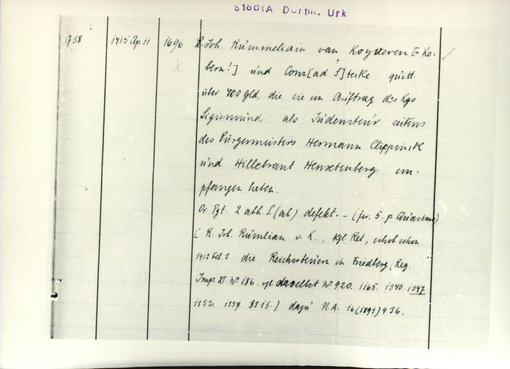 StadtA Dortm. Urk
1758 1415 Apr. 11 1690 R. Joh. Rümmelian van Koyveren [= Ko-
bern!] und Conr[ad] S]terke quitt.
über 400 gld, die sie im Auftrag des Kgs
Sigismund als Judensteur seitens
des Bürgermeisters Hermann Cleppinck
und Hillebrant Henxtenberg em-
pfangen haben.
Or. Pgt. 2 abh. S. (ab) defekt. – (fer. 5. p. Quasimod)
[R. Joh. Rümlian v. K., kgl. Rat, erhob schon
1412 Febr. 3 die Reichssteuern in Friedberg, Reg.
Imp. XI. Nr 186. vgl. daselbst Nr 920. 1165. 1340. 1347.
1352. 1359. 3315.] dazu N.A. 16 (1891) 436.